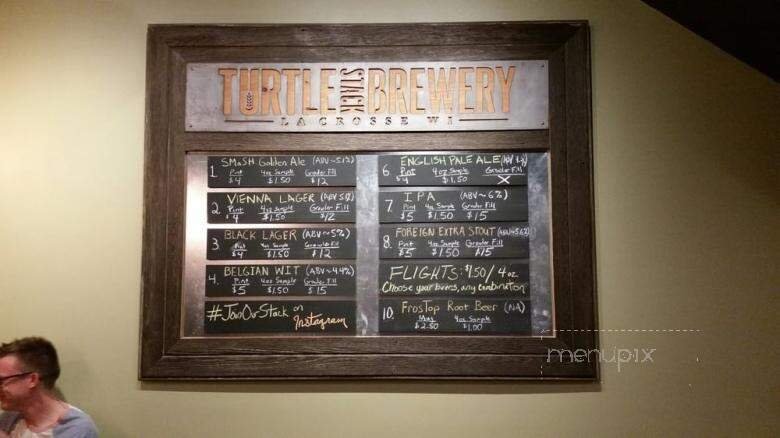 TURTLE STACK BREWERY
LACROSSE WI
1. SMaSH Golden Ale (ABV~5.1%)
Pint 4oz Sample Growler Fill
$4 $1.50 $12
2. VIENNA LAGER (ABV 5.1%)
Pint 4oz Sample Growler Fill
$4 $1.50 $12
3. BLACK LAGER (ABV~5%)
Pint 4oz Sample Growler Fill
$4 $1.50 $12
4. BELGIAN WIT (ABV~4.4%)
Pint 4oz Sample Growler Fill
$5 $1.50 $15
#JoinOurStack on
Instagram
6. ENGLISH PALE ALE
Pint 4oz Sample Growler Fill
$4 $1.50 X
7. IPA (ABV~6%)
Pint 4oz Sample Growler Fill
$5 $1.50 $15
8. FOREIGN EXTRA STOUT (ABV~5.6%)
Pint 4oz Sample Growler Fill
$5 $1.50 $15
FLIGHTS: $1.50/4oz.
Choose your beers, any combination
10. FrosTop Root Beer (NA)
Mug 4oz Sample
$2.50 $1.00
menupix